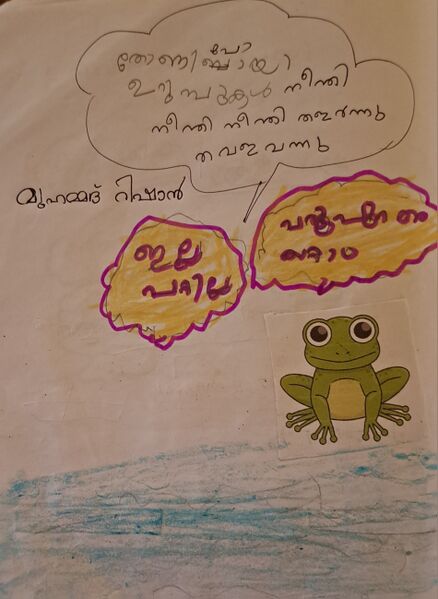 തോണിപോയി
ഉറുമ്പുകൾ നീന്തി
നീന്തി നീന്തി തളർന്നു
തവള വന്നു
മുഹമ്മദ് റിഷാൻ
ഇല്ല
പറ്റില്ല